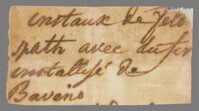 cristaux de feld
spath avec du fer
cristallisé de
Baveno